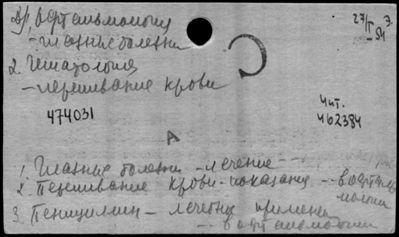 офтальмология 27/I 51 г.
- глазные болезни
2. Гематология
- переливание крови
474031
Чит.
462384
А
1. Глазные болезни - лечение
2. Переливание крови - показания -- в офталь-
мологии
3. Пенициллин - лечебн. применен.
-- в офтальмологии